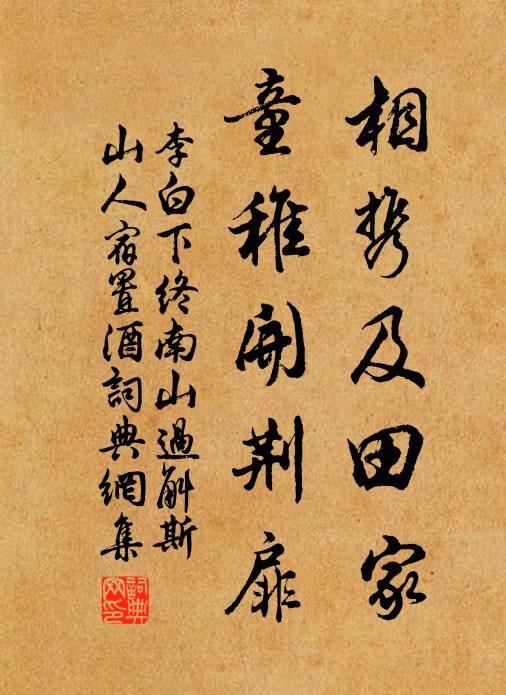 相携及田家
童稚開荆扉
李白下终南山過斛斯
山人宿置酒詞典網集
詞典網印